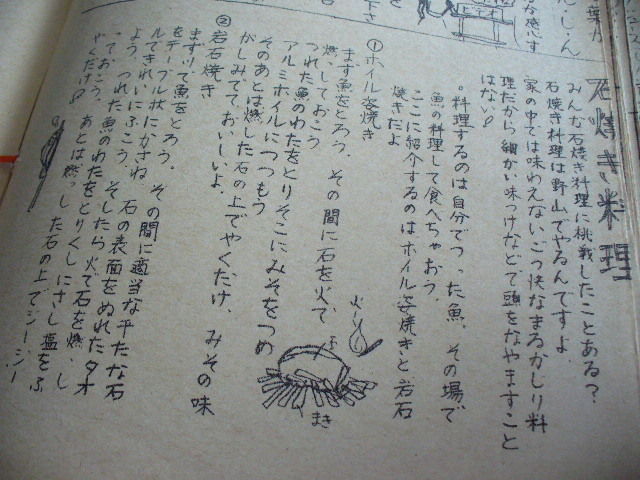 石焼き料理
みんな石焼き料理に挑戦したことある？
石焼き料理は野山でやるんですよ
家の中では味わえないごう快なまるかじり料
理だから細かい味つけなどで頭をなやますこと
はない！
。料理するのは自分でつった魚。その場で
魚の料理して食べちゃおう。
ここに紹介するのはホイル姿焼きと岩石
焼きだよ
①ホイル姿焼き
まず魚をとろう。その間に石を火で
燃しておこう
つれた魚のわたをとりそこにみそをつめ
アルミホイルにつつもう
そのあとは燃した石の上でやくだけ、みその味
がしみてておいしいよ。
②岩石焼き
まずツて魚をとろう。その間に適当な平たな石
をテーブル状にかさね、石の表面をぬれたタオ
ルできれいにふこう。そしたら火で石を燃し
よう。つれた魚のわたをとりくしにさし塩をふ
っておこう。あとは燃した石の上でジージー
やくだけ！
火
まき